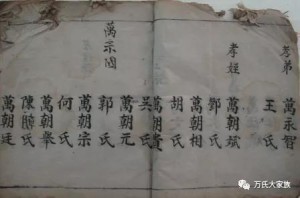 考弟
萬永智
王氏
孝姪
萬朝斌
鄧氏
萬朝相
胡氏
萬朝
吴氏
萬朝元
郭氏
萬朝宗
何氏
萬朝舉
陳氏
萬朝廷
萬示國
万氏大家族